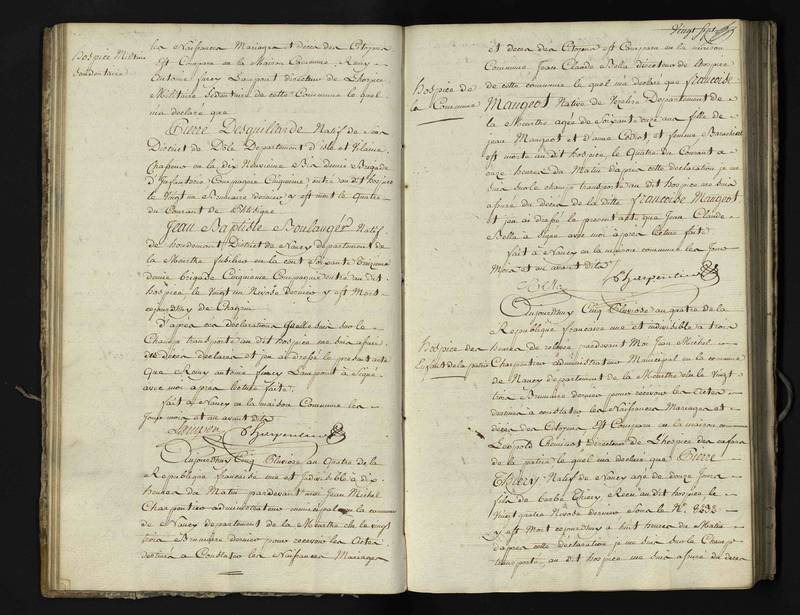 Hospice Militaire
Sedentaire
les Naissances Mariages et deces des Citoyens
Est Comparu en la Maison Commune, Remy
Antoine Lampont directeur de Lhospice
Militaire Sedentaire de cette Commune le quel
ma declaré que
Pierre Desquillande Natif de
District de Dôle Departement d'isle et Vilaine
Chasseur en la dix Neuvieme Bis demie Brigade
d'Infanterie Compagnie Cinquieme entré au dit hospice
le Vingt un Brumaire dernier y est mort le Quatre
du Courant de
Jean Baptiste Boulanger Natif
de houdemont District de Nancy departement de
la Meurthe fusilier en la cent Soixante treizieme
demie brigade Cinquieme Compagnie entré au dit
hospice le Vingt un Nivose dernier y est Mort
cejourdhuy de Chagrin
D'apres ces declarations je me suis sur le
Champ transporté au dit hospice me suis assuré
des deces declarés et jen ai dressé le present acte
Que Remy antoine Lampont à Signé
avec moi apres lecture faite
fait à Nancy en la maison Commune les
Jour mois et an avant dits
Charpentier
Aujourdhuy Cinq Pluviose an Quatre de la
Republique francaise une et Indivisible à dix
heures du Matin pardevant moi Jean Michel
Charpentier administrateur municipal en la commune
de Nancy departement de la Meurthe elu le vingt
trois Brumaire dernier pour recevoir les Actes
destinés a Constater les Naissances Mariages
Vingt Sept
et deces des Citoyens est Comparu en la maison
Commune Jean Claude Bella directeur de hospice
de cette commune le quel m'a declaré que francoise
Hospice de
la Commune
Maugeot Native de Departement de
la Meurthe agée de Soixant onze ans fille de
jean Maugeot et d'anne et femme
est morte au dit hospice le Quatre du Courant a
onze heures du Matin dapres cette declaration je me
suis sur le champ transporté au dit hospice me suis
assuré du deces de la ditte francoise Maugeot
et jen ai dressé le present acte que Jean Claude
Bella à Signé avec moi à près lecture faite
fait à Nancy en la maison commune les jour
Mois et an avant dits
Bella Charpentier
Aujourdhuy Cinq Pluviose an quatre de la
Republique francaise une et indivisible a trois
Hospice des
Enfants de la patrie
heures de relevée pardevant Moi Jean Michel
Charpentier administrateur Municipal en la commune
de Nancy departement de la Meurthe elu le Vingt
trois Brumaire dernier pour recevoir les Actes
destinés à constater les Naissances Mariages et
déces des Citoyens Est Comparu en la maison commune
Leopold Directeur de Lhospice des enfans
de la patrie le quel ma declaré que Pierre
Thiery Natif de Nancy age de douze Jours
fils de barbe Thiery Recu au dit hospice le
Vingt quatre Nivose dernier Sous le No. 8232
y est Mort cejourdhuy a huit heures du Matin
d'apres cette declaration je me suis sur le Champ
transporté au dit hospice me suis assuré du deces